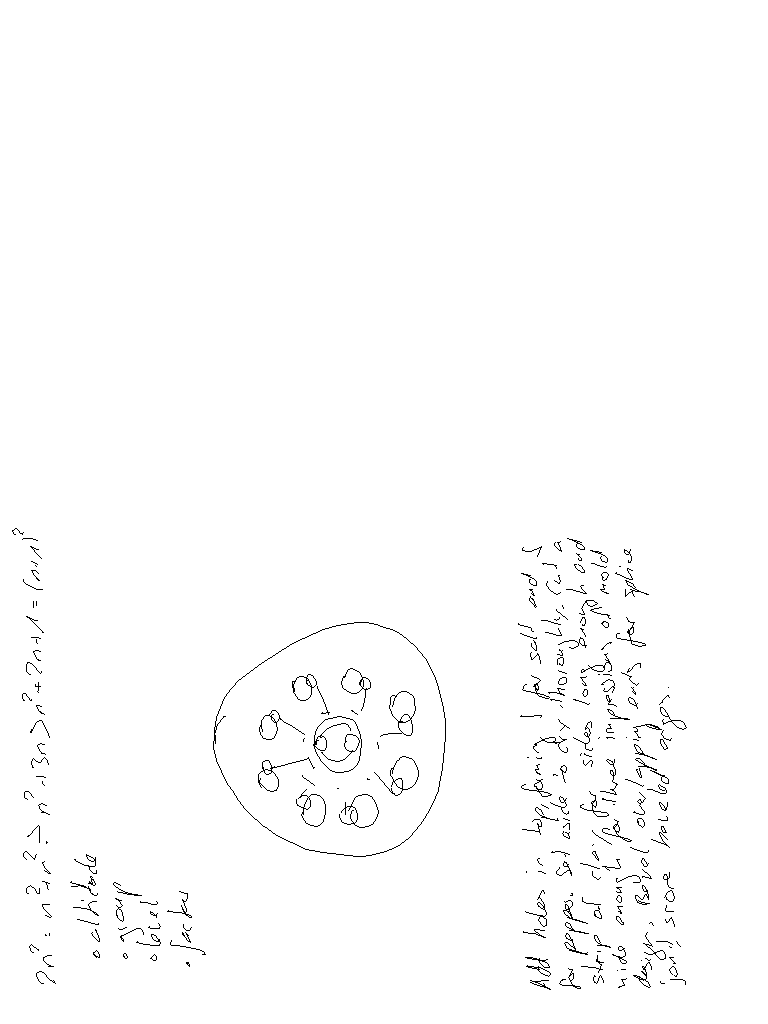 2n² = n²+n² > n²+3n > n²+2n+1 = (n+1)²
• altitude
• group
• level
• factor
Add holes in top, forming J for salt and S
for pepper. Set aside to dry thoroughly. Cut a
strip of clay for sides long enough and
wide enough for three impressions of mold
design. Bevel overlapping ends for splice
joint, score beveled edges.